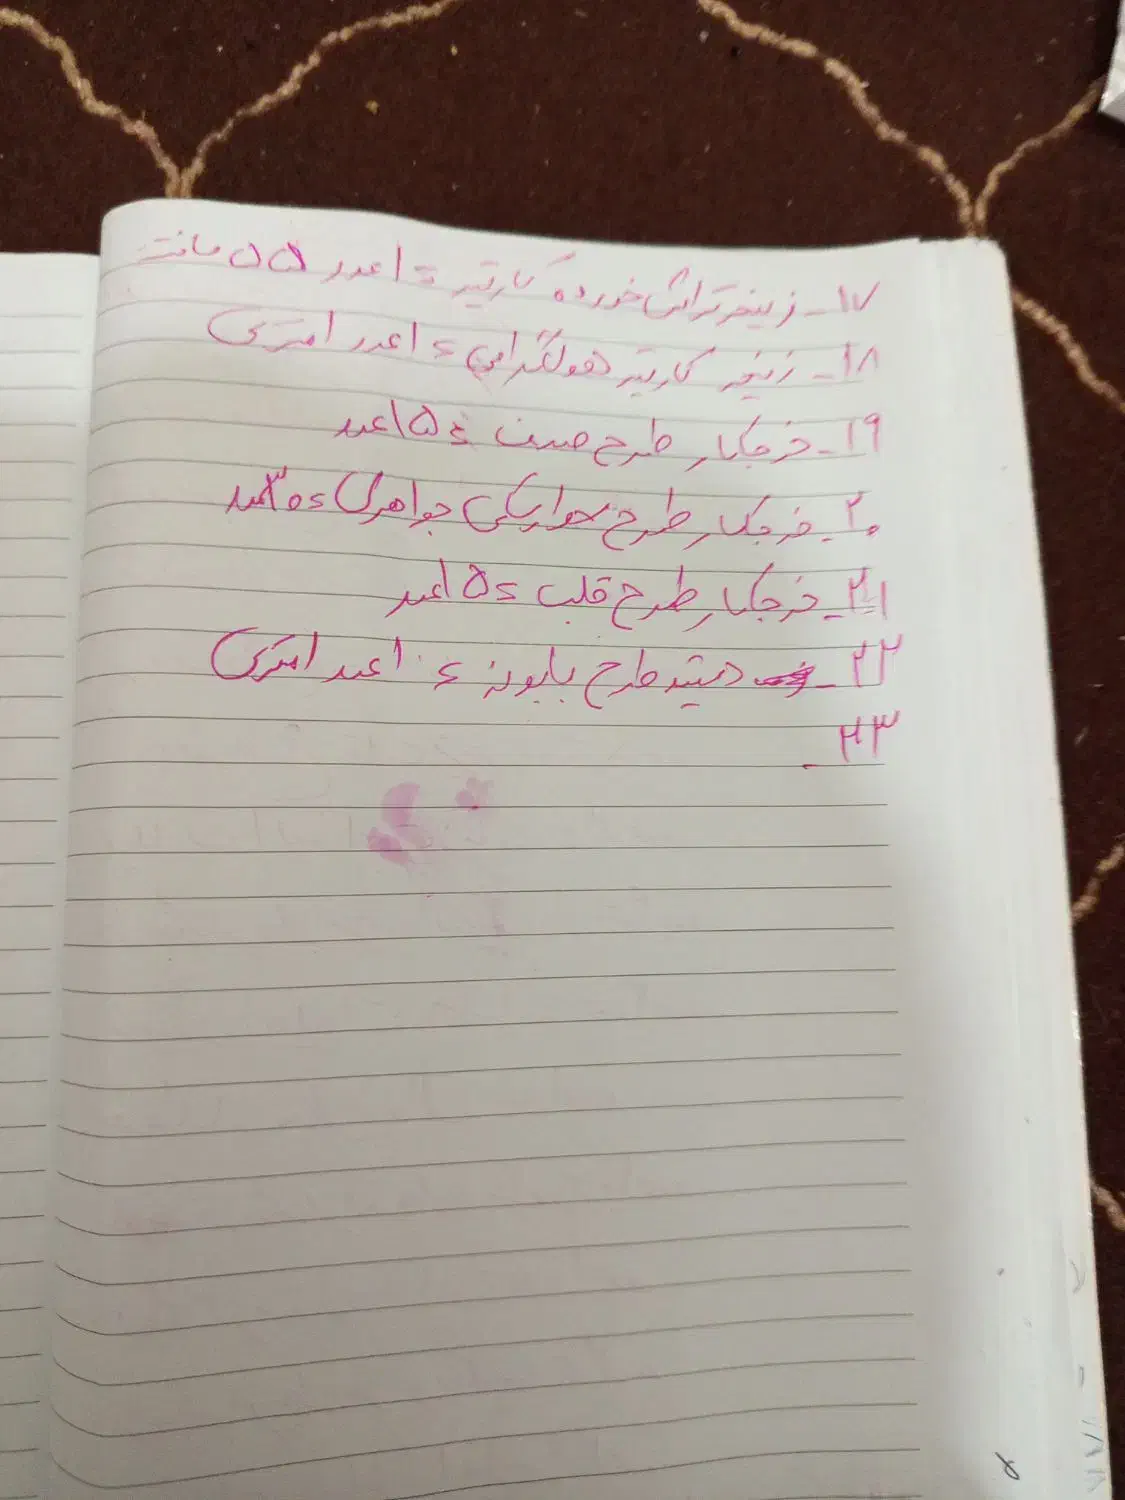 ۱۷- زنجیر تراش خورده کارتیه = ۱ عدد ۵۵ سانت
۱۸- زنجیر کارتیه هولگرامی = ۱ عدد ۱ متری
۱۹- خرجکار طرح صدف = ۱۵ عدد
۲۰- خرجکار طرح سواریکی جواهری = ۳۰ عدد
۲۱- خرجکار طرح قلب = ۱۵ عدد
۲۲- طرح بابونه = ۱ عدد ۱ متری
۲۳-